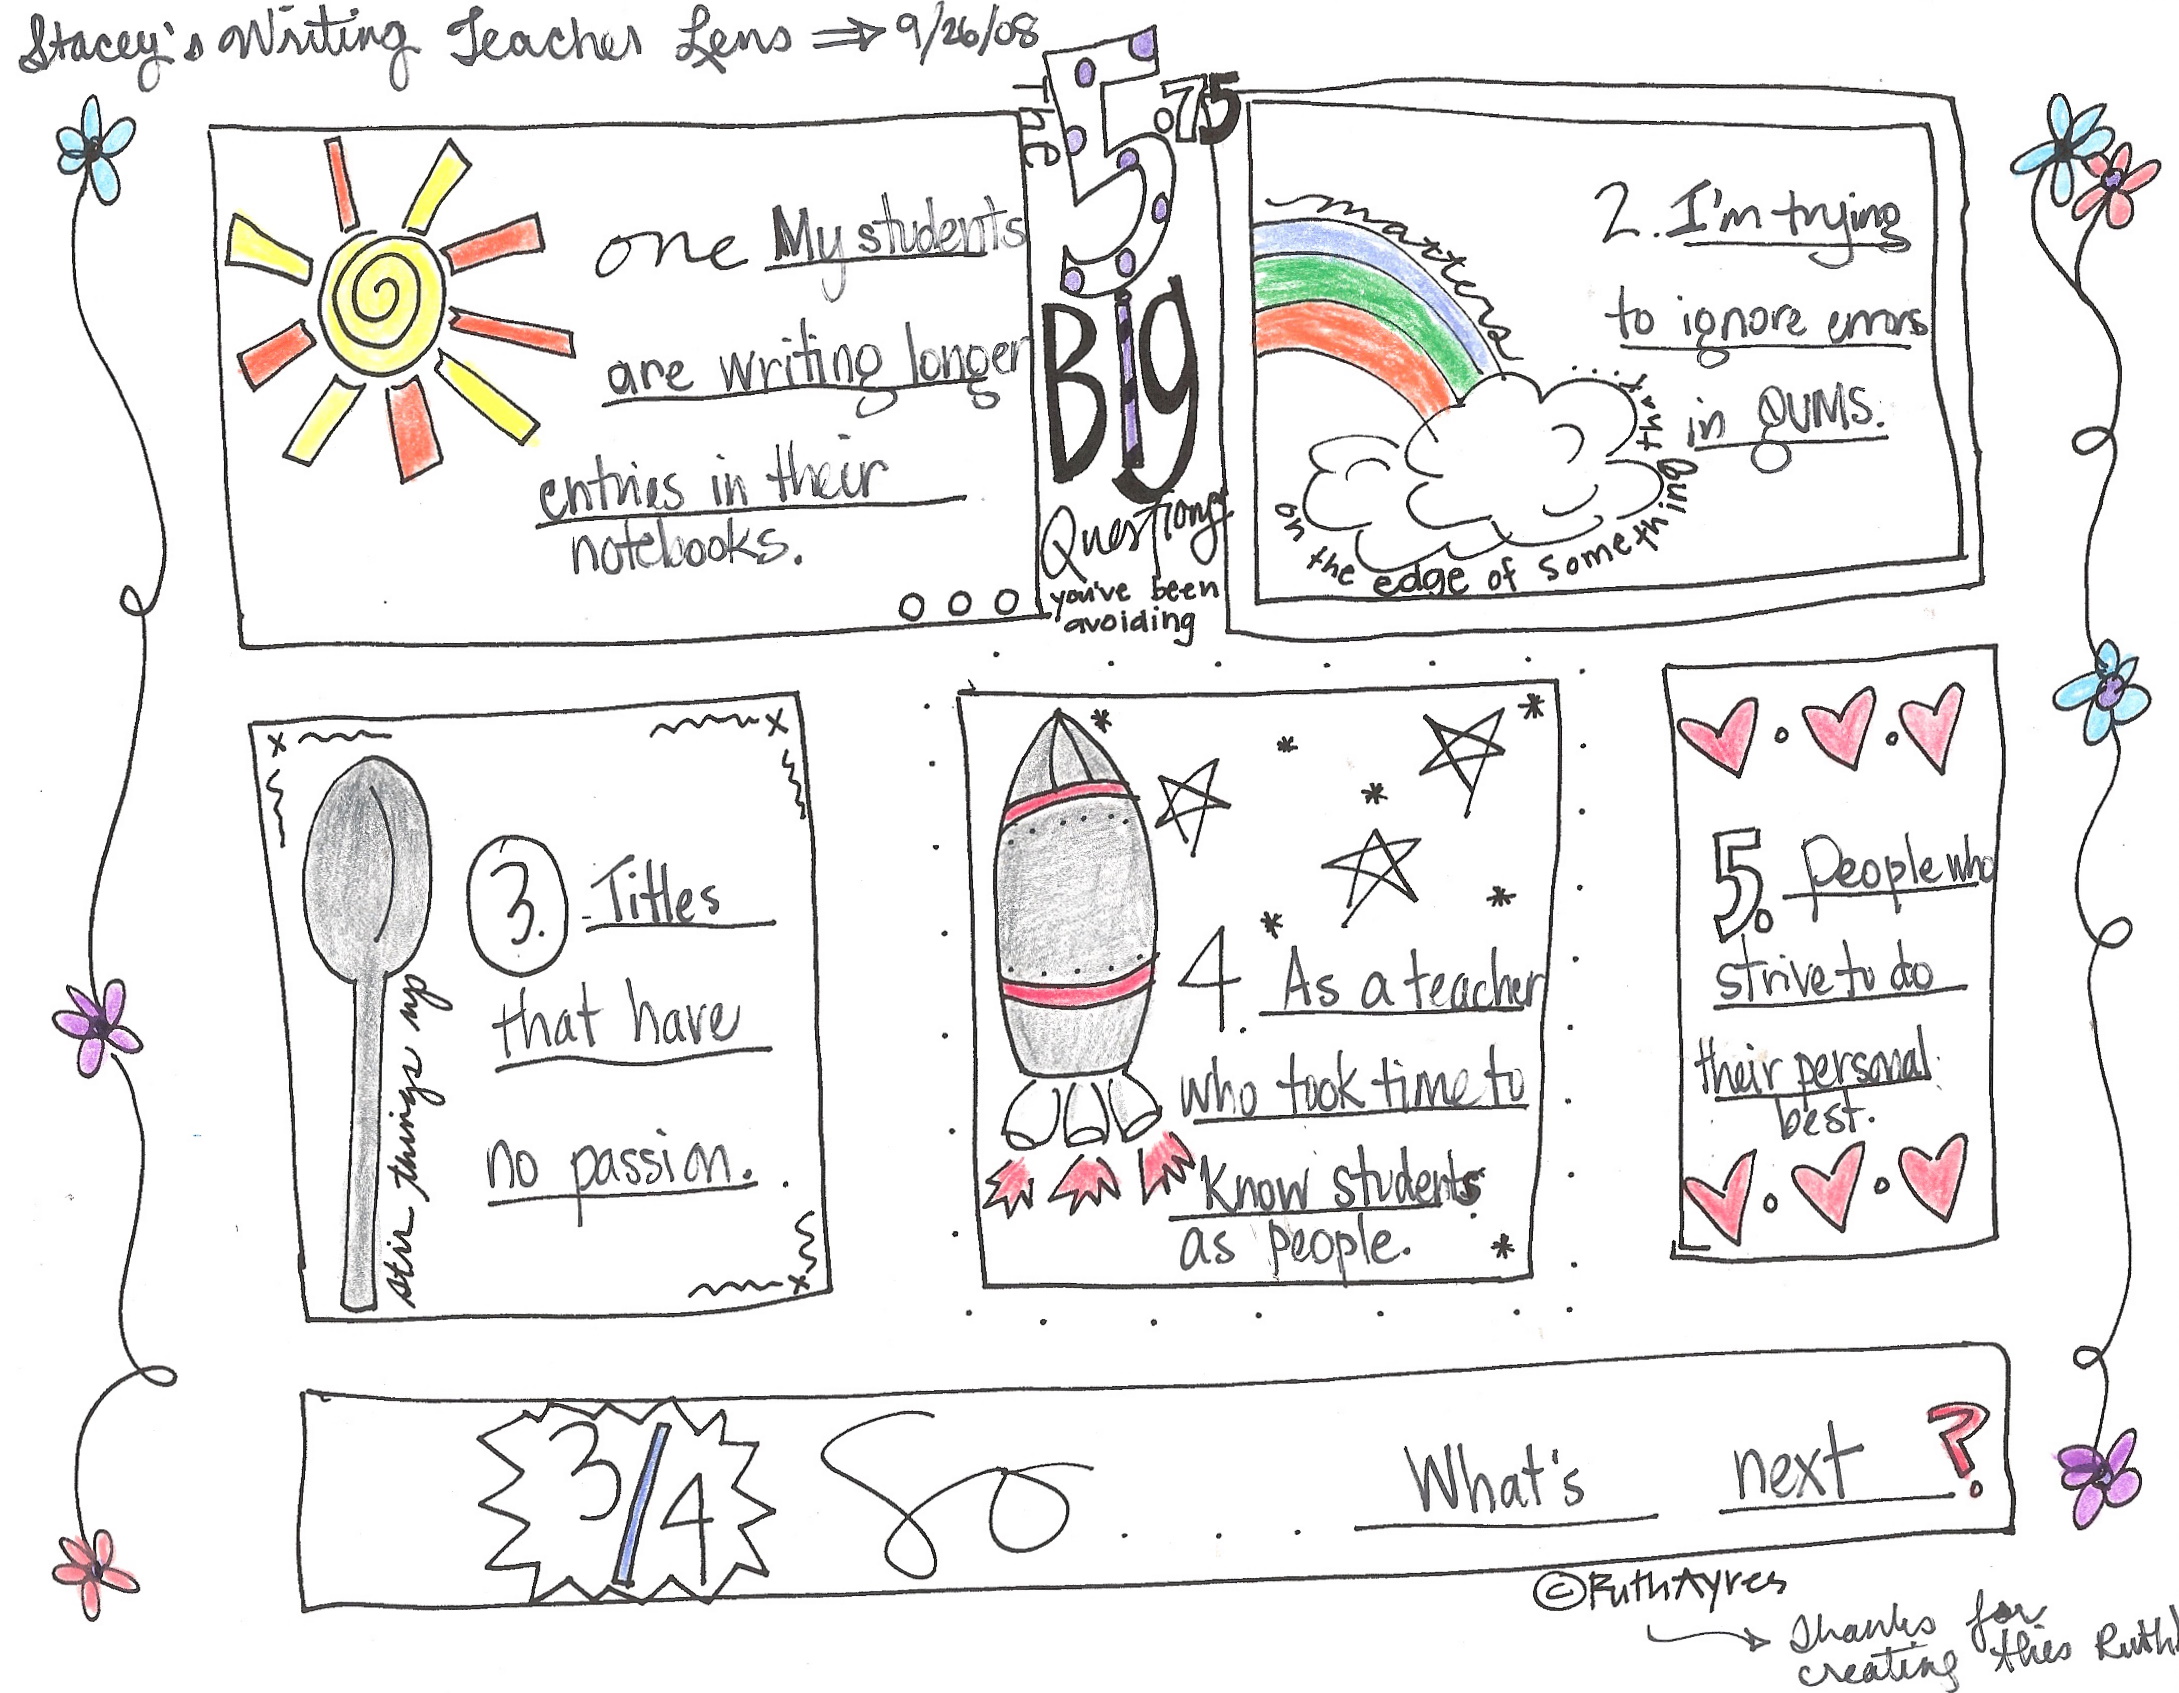 Stacey's Writing Teacher Lens ⇒ 9/26/08
The 5.75
Big
Questions
you've been
avoiding
one My students
are writing longer
entries in their
notebooks.
2. I'm trying
to ignore errors
in QUMS.
on the edge of something that . . . . matters
3. Titles
that have
no passion.
stir things up
4. As a teacher
who took time to
know students
as people.
5. People who
strive to do
their personal
best.
3/4 So . . . . What's next ?
©Ruth Ayres
→ Thanks for
creating this Ruth!